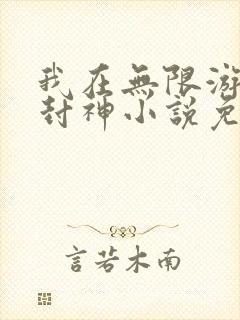 我在無限游
封神小說免
言若木南